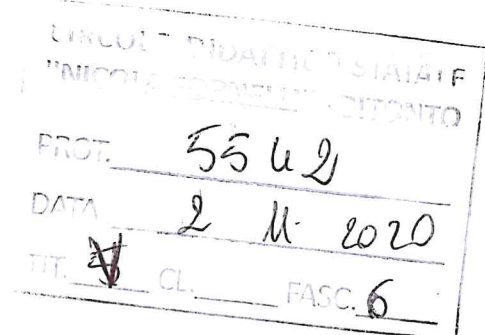 CIRCOLO DIDATTICO STATALE
"NICOLA FORNELLI" - BITONTO
PROT. 5542
DATA 2 11. 2020
TIT. V CL. FASC. 6